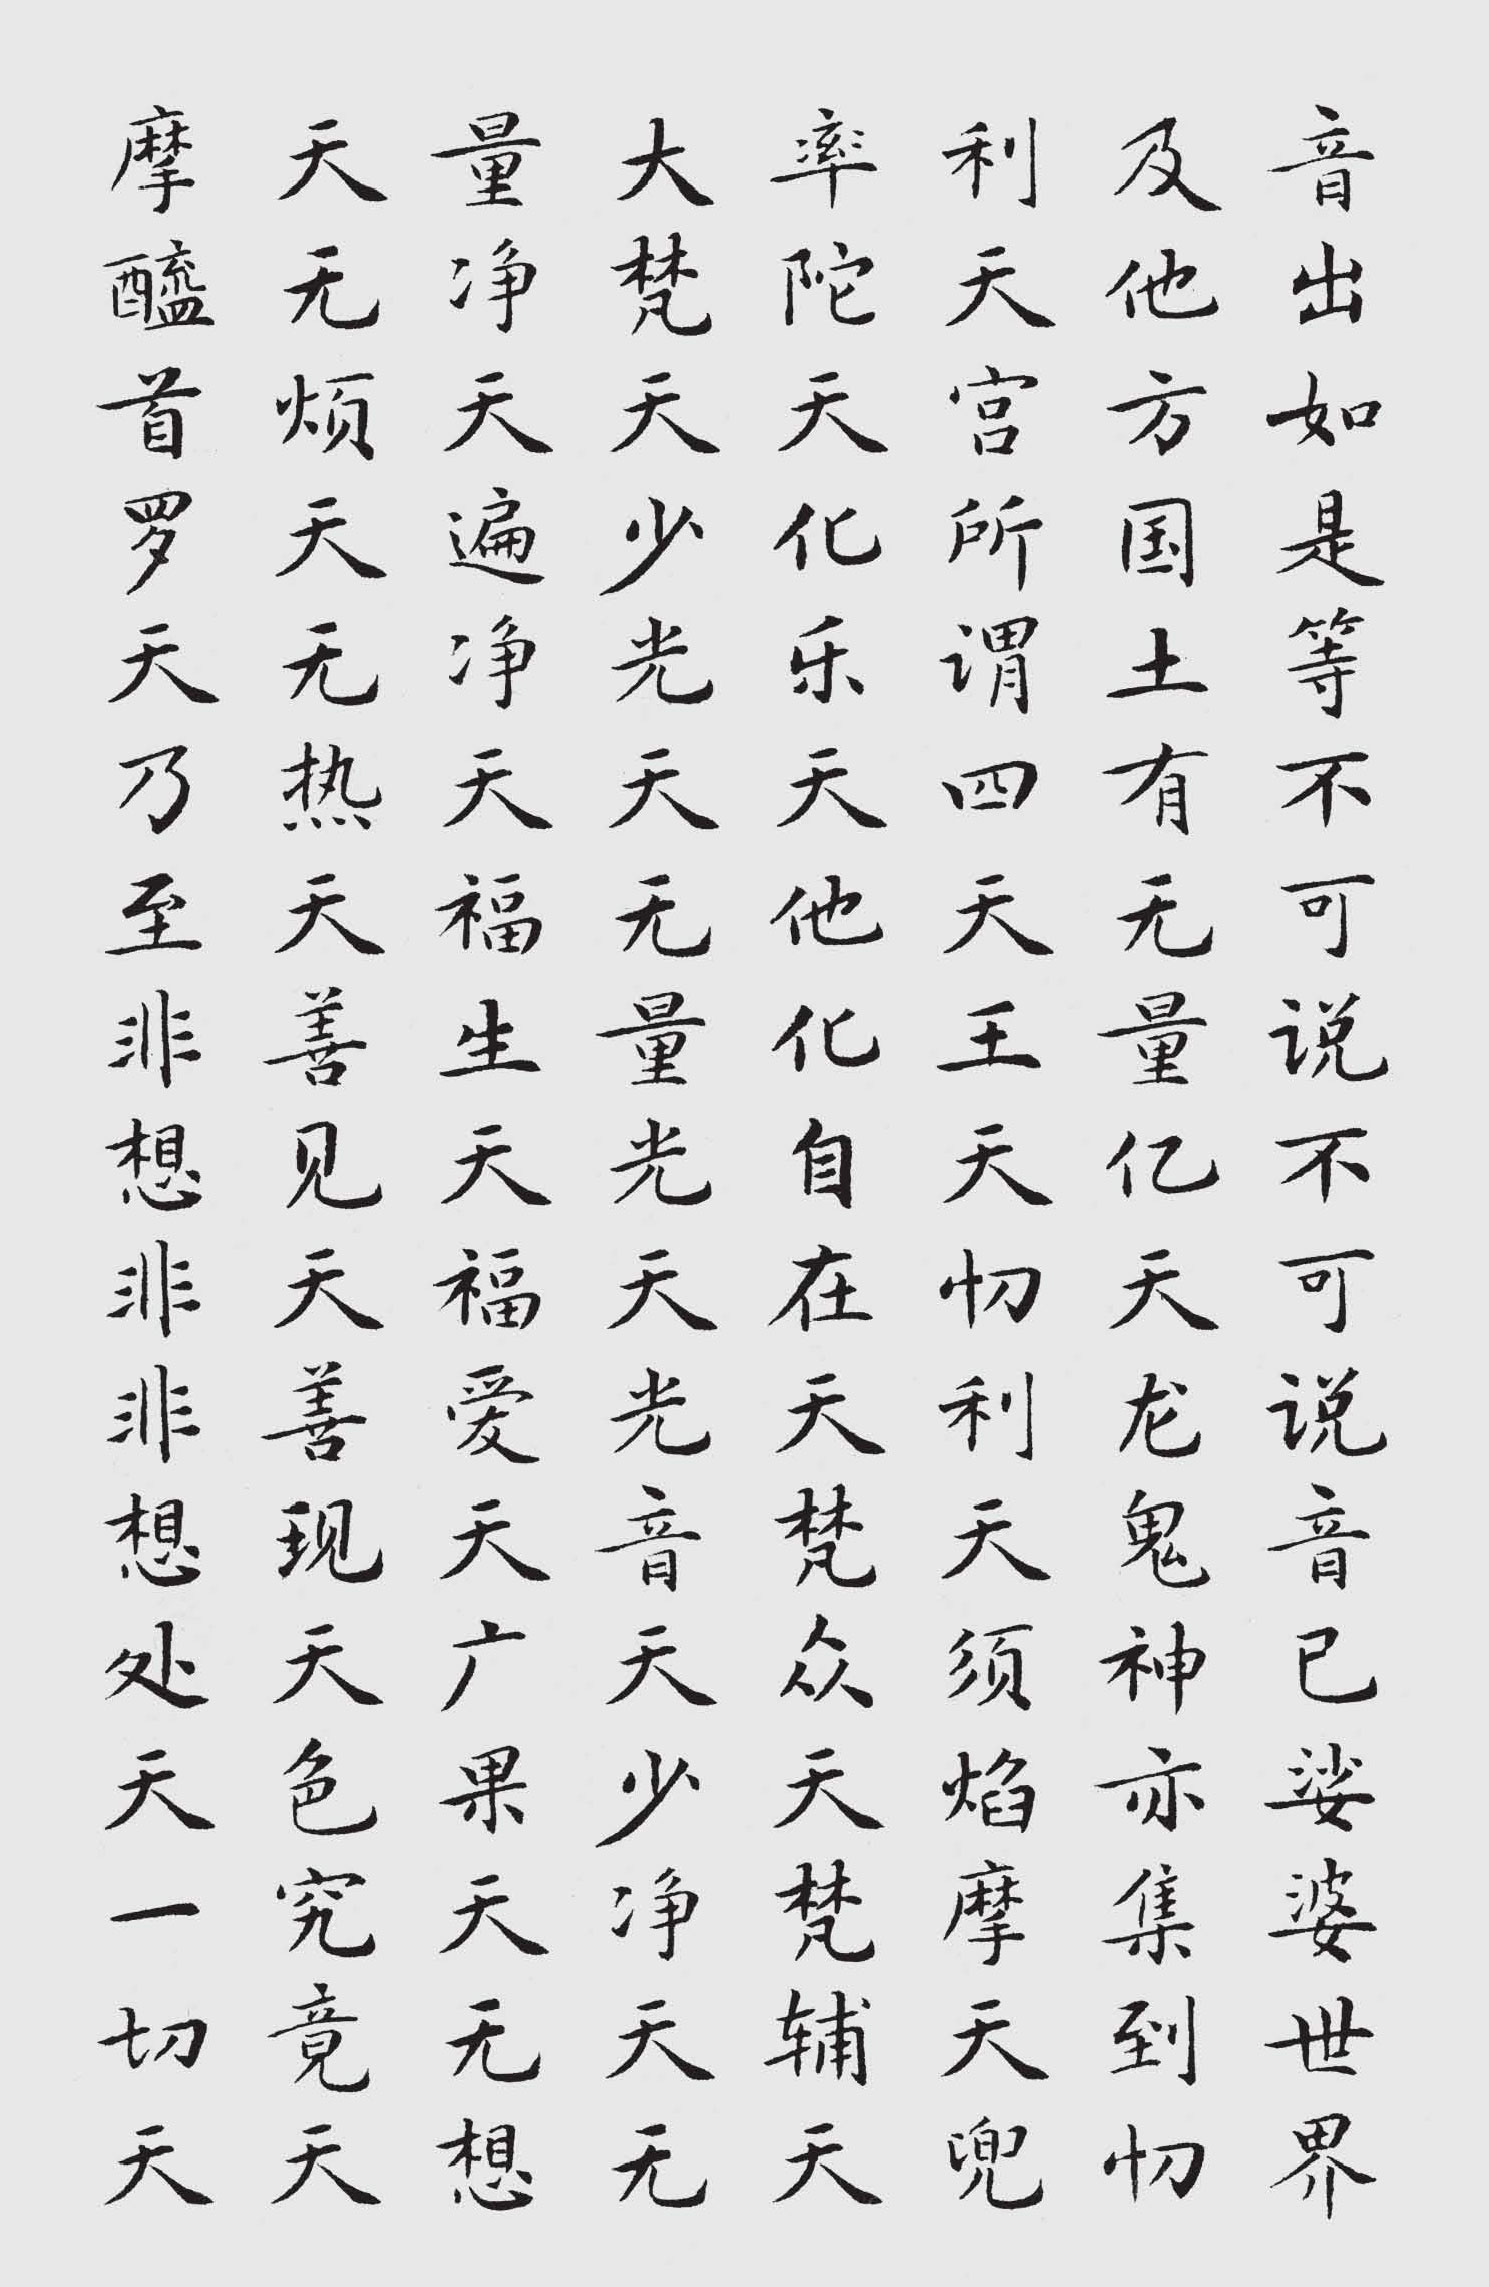 音出如是等不可说不可说音已娑婆世界
及他方国土有无量亿天龙鬼神亦集到忉
利天宫所谓四天王天忉利天须焰摩天兜
率陀天化乐天他化自在天梵众天梵辅天
大梵天少光天无量光天光音天少净天无
量净天遍净天福生天福爱天广果天无想
天无烦天无热天善见天善现天色究竟天
摩醯首罗天乃至非想非非想处天一切天